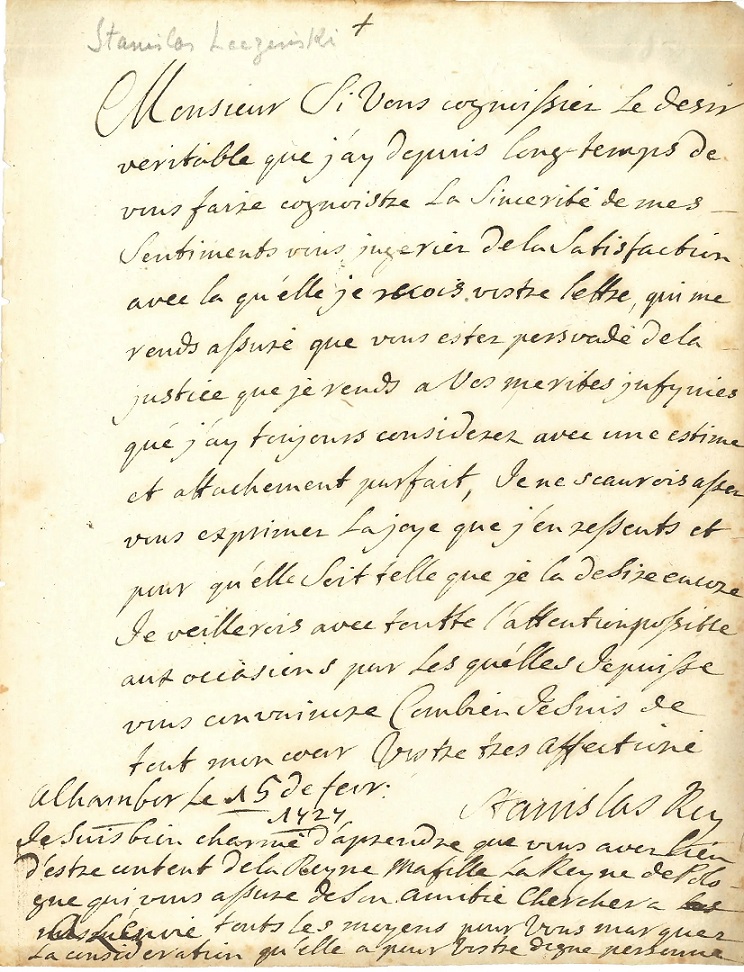 Stanislas Leczinski +
Monsieur Si Vous cognoissiez Le desir
veritable que j'ay depuis long-temps de
vous faire cognoistre La Sincerité de mes
Sentiments vous jugeriez de la Satisfaction
avec la qu'elle je recois vostre lettre, qui me
rends assuré que vous estez persvadé de la
justice que je rends a Vos merites jnfynies
qué j'ay toujours considerez avec une estime
et attachement parfait, Je ne scaurois assez
vous exprimer La joye que j'en ressents et
pour qu'elle Soit telle que je la desire encore
Je veillerois avec toutte l'attention possible
aux occasions par Les quélles Je puisse
vous convaincre Combien Je Suis de
tout mon coeur Vostre tres affectioné
Stanislas Roy
Le 15 de fevr:
1727
Je Suis bien charmé d'aprendre que vous avez Lieu
d'estre content de la Reyne Ma fille La Reyne de Polo
gne qui vous assure de Son amitie Cherchera
touts les moyens pour Vous marquer
La consideration qu'elle a pour Vostre digne personne